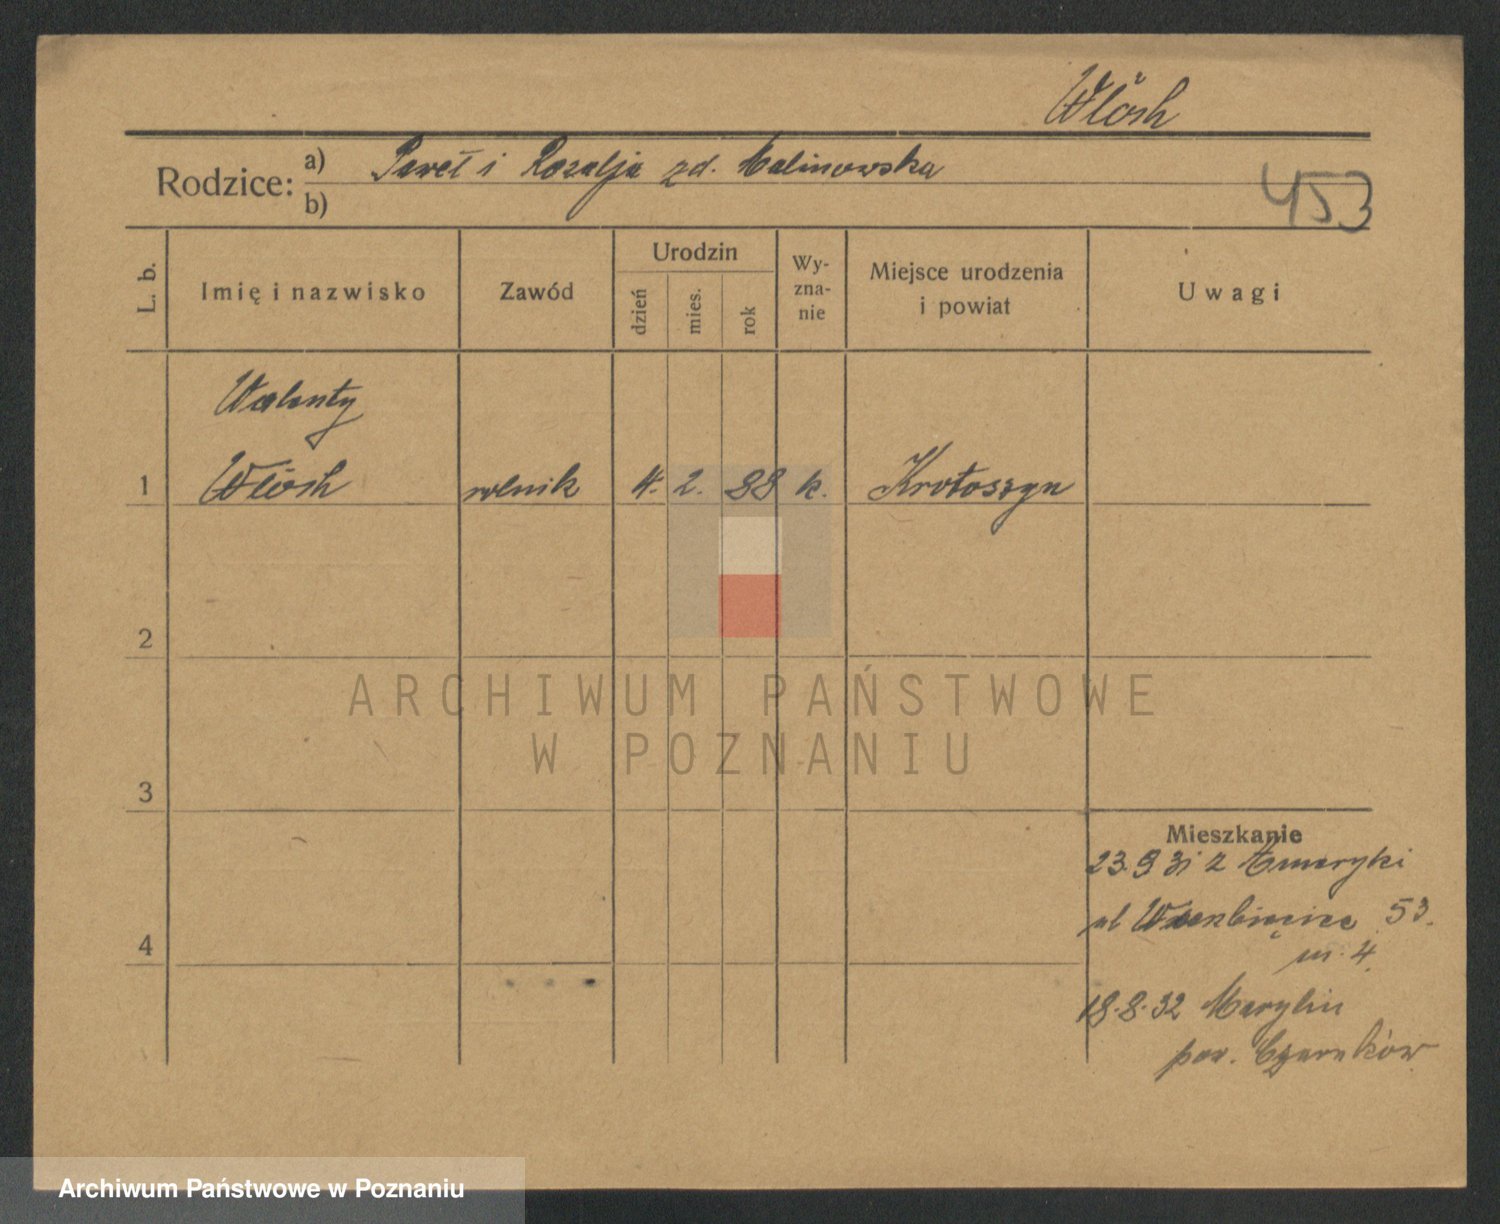 Wlösh
Rodzice: a) Paweł i Rozalja zd. Malinowska
b)
453
L. b.
Imię i nazwisko
Zawód
Urodzin
dzień
mies.
rok
Wy-
zna-
nie
Miejsce urodzenia
i powiat
Uwagi
Walenty
1 Wlösh rolnik 4. 2. 88 k. Krotoszyn
2
3
4
ARCHIWUM PAŃSTWOWE
W POZNANIU
Mieszkanie
23.9 31 z Ameryki
ul Wierzbięcice 53.
m. 4.
18.8.32 Marylin
pow. Czarnków
Archiwum Państwowe w Poznaniu